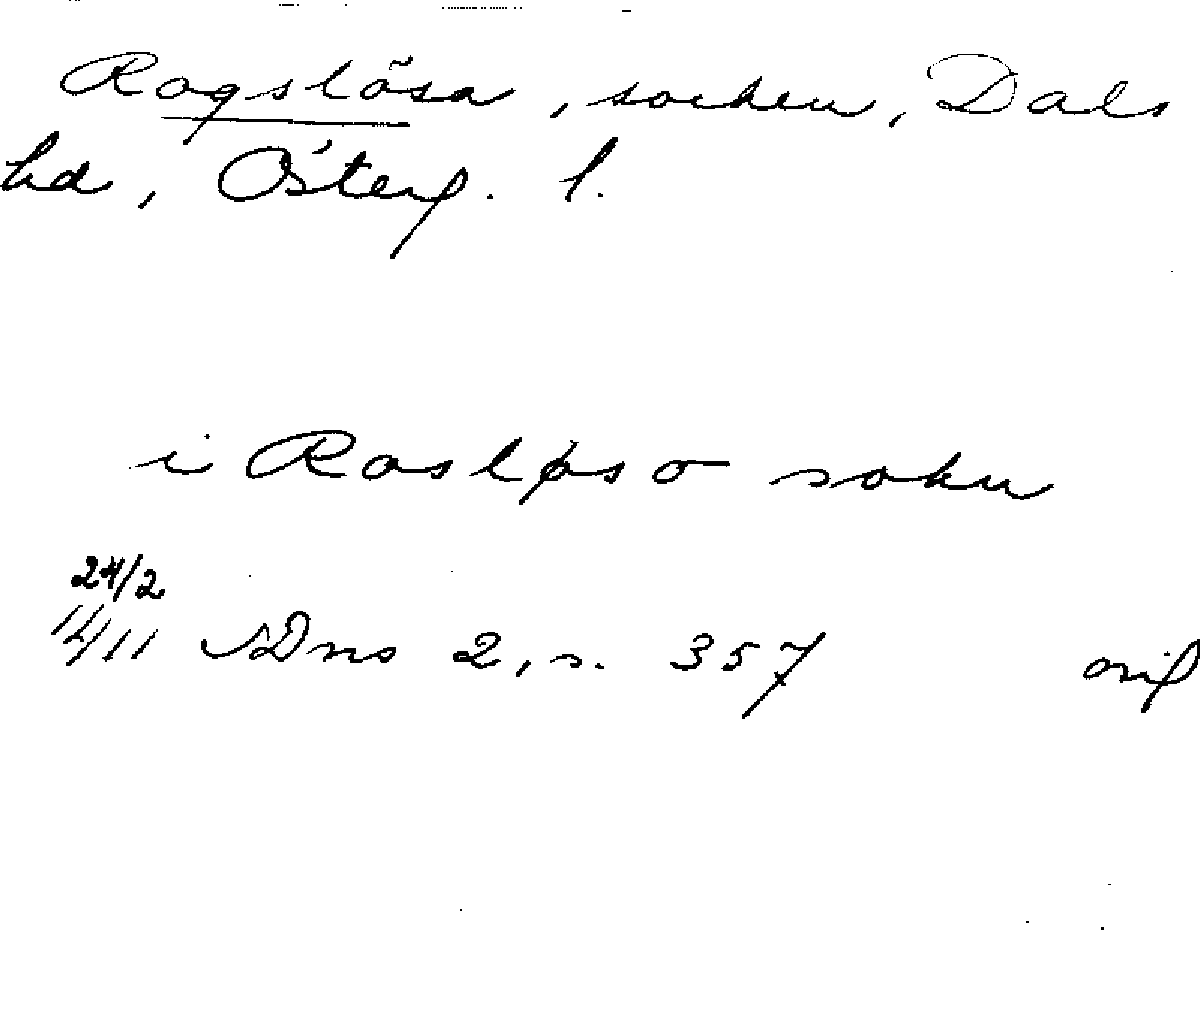 Rogslösa, socken, Dals
hd, Österg. l.
i Rosløso sokn
24/2
14/11 SDns 2, s. 357 orig